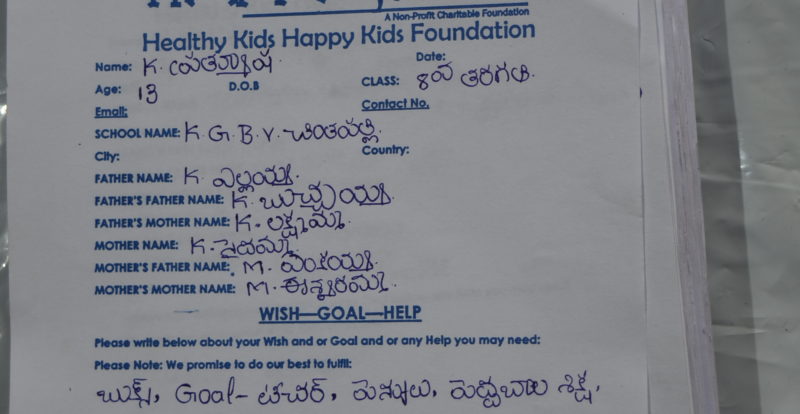 A Non-Profit Charitable Foundation
Healthy Kids Happy Kids Foundation
Name: K. Date:
Age: 13 D.O.B CLASS: 8వ తరగతి.
Email: Contact No.
SCHOOL NAME: K. G. B. V. చింతపల్లి.
City: Country:
FATHER NAME: K. ఎల్లయ్య.
FATHER'S FATHER NAME: K. బుచ్చయ్య.
FATHER'S MOTHER NAME: K. లక్ష్మమ్మ.
MOTHER NAME: K. సైదమ్మ.
MOTHER'S FATHER NAME: M. వెంకయ్య.
MOTHER'S MOTHER NAME: M. ఈశ్వరమ్మ.
WISH—GOAL—HELP
Please write below about your Wish and or Goal and or any Help you may need:
Please Note: We promise to do our best to fulfill:
బుక్స్, Goal - టీచర్, పెన్నులు,